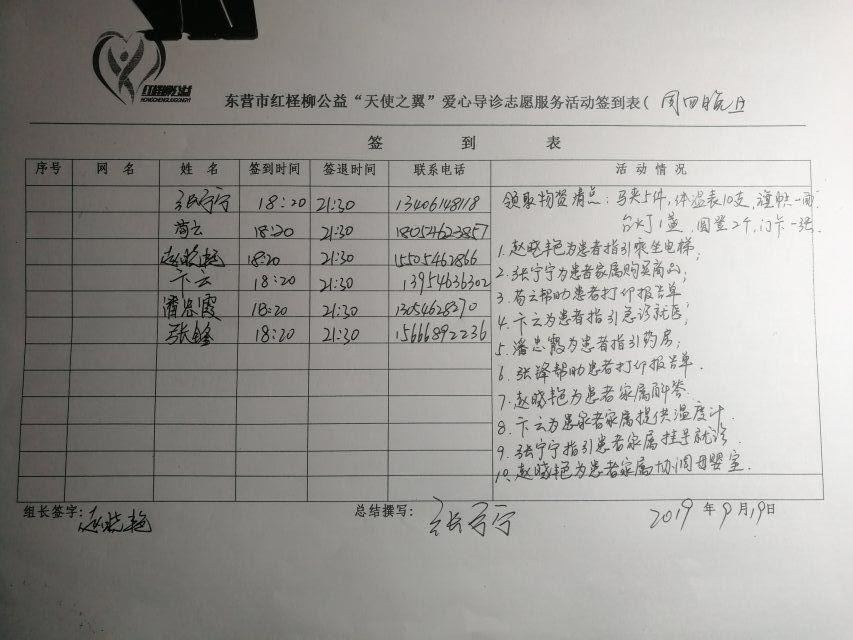 红柽柳公益
HONGCHENGLIUGONGYI
东营市红柽柳公益“天使之翼”爱心导诊志愿服务活动签到表(周四晚
签 到 表
序号 网 名 姓 名 签到时间 签退时间 联系电话 活 动 情 况
张宁宁 18:20 21:30 13406148118 领取物资清点:马夹5件,体温表10支,旗帜一面
台灯1盏 圆凳2个,门卡一张
苟云 18:20 21:30 18054623857
1.赵晓艳为患者指引乘坐电梯;
赵晓艳 18:20 21:30 15505462866
2.张宁宁为患者家属购买商品;
卞云 18:20 21:30 13954636302
3.苟云帮助患者打印报告单
潘忠霞 18:20 21:30 13054628270
4.卞云为患者指引急诊就医;
张锋 18:20 21:30 15666892236
5.潘忠霞为患者指引药房;
6.张锋帮助患者打印报告单.
7.赵晓艳为患者家属解答.
8.卞云为患者家属提供温度计.
9.张宁宁指引患者家属挂号就诊.
10.赵晓艳为患者家属协调母婴室.
组长签字:赵晓艳 总结撰写:张宁宁 2019年9月19日